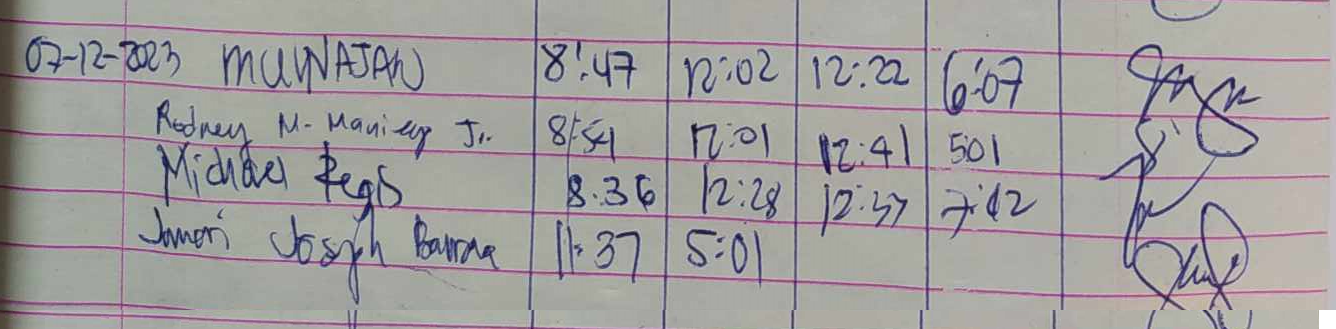 07-12-2023 MUNAJAN 8:47 12:02 12:22 6:07
Rodney M. Jr. 8:54 12:01 12:41 501
Michael Regis 8.36 12:28 12:37 7:12
Joseph 11:37 5:01